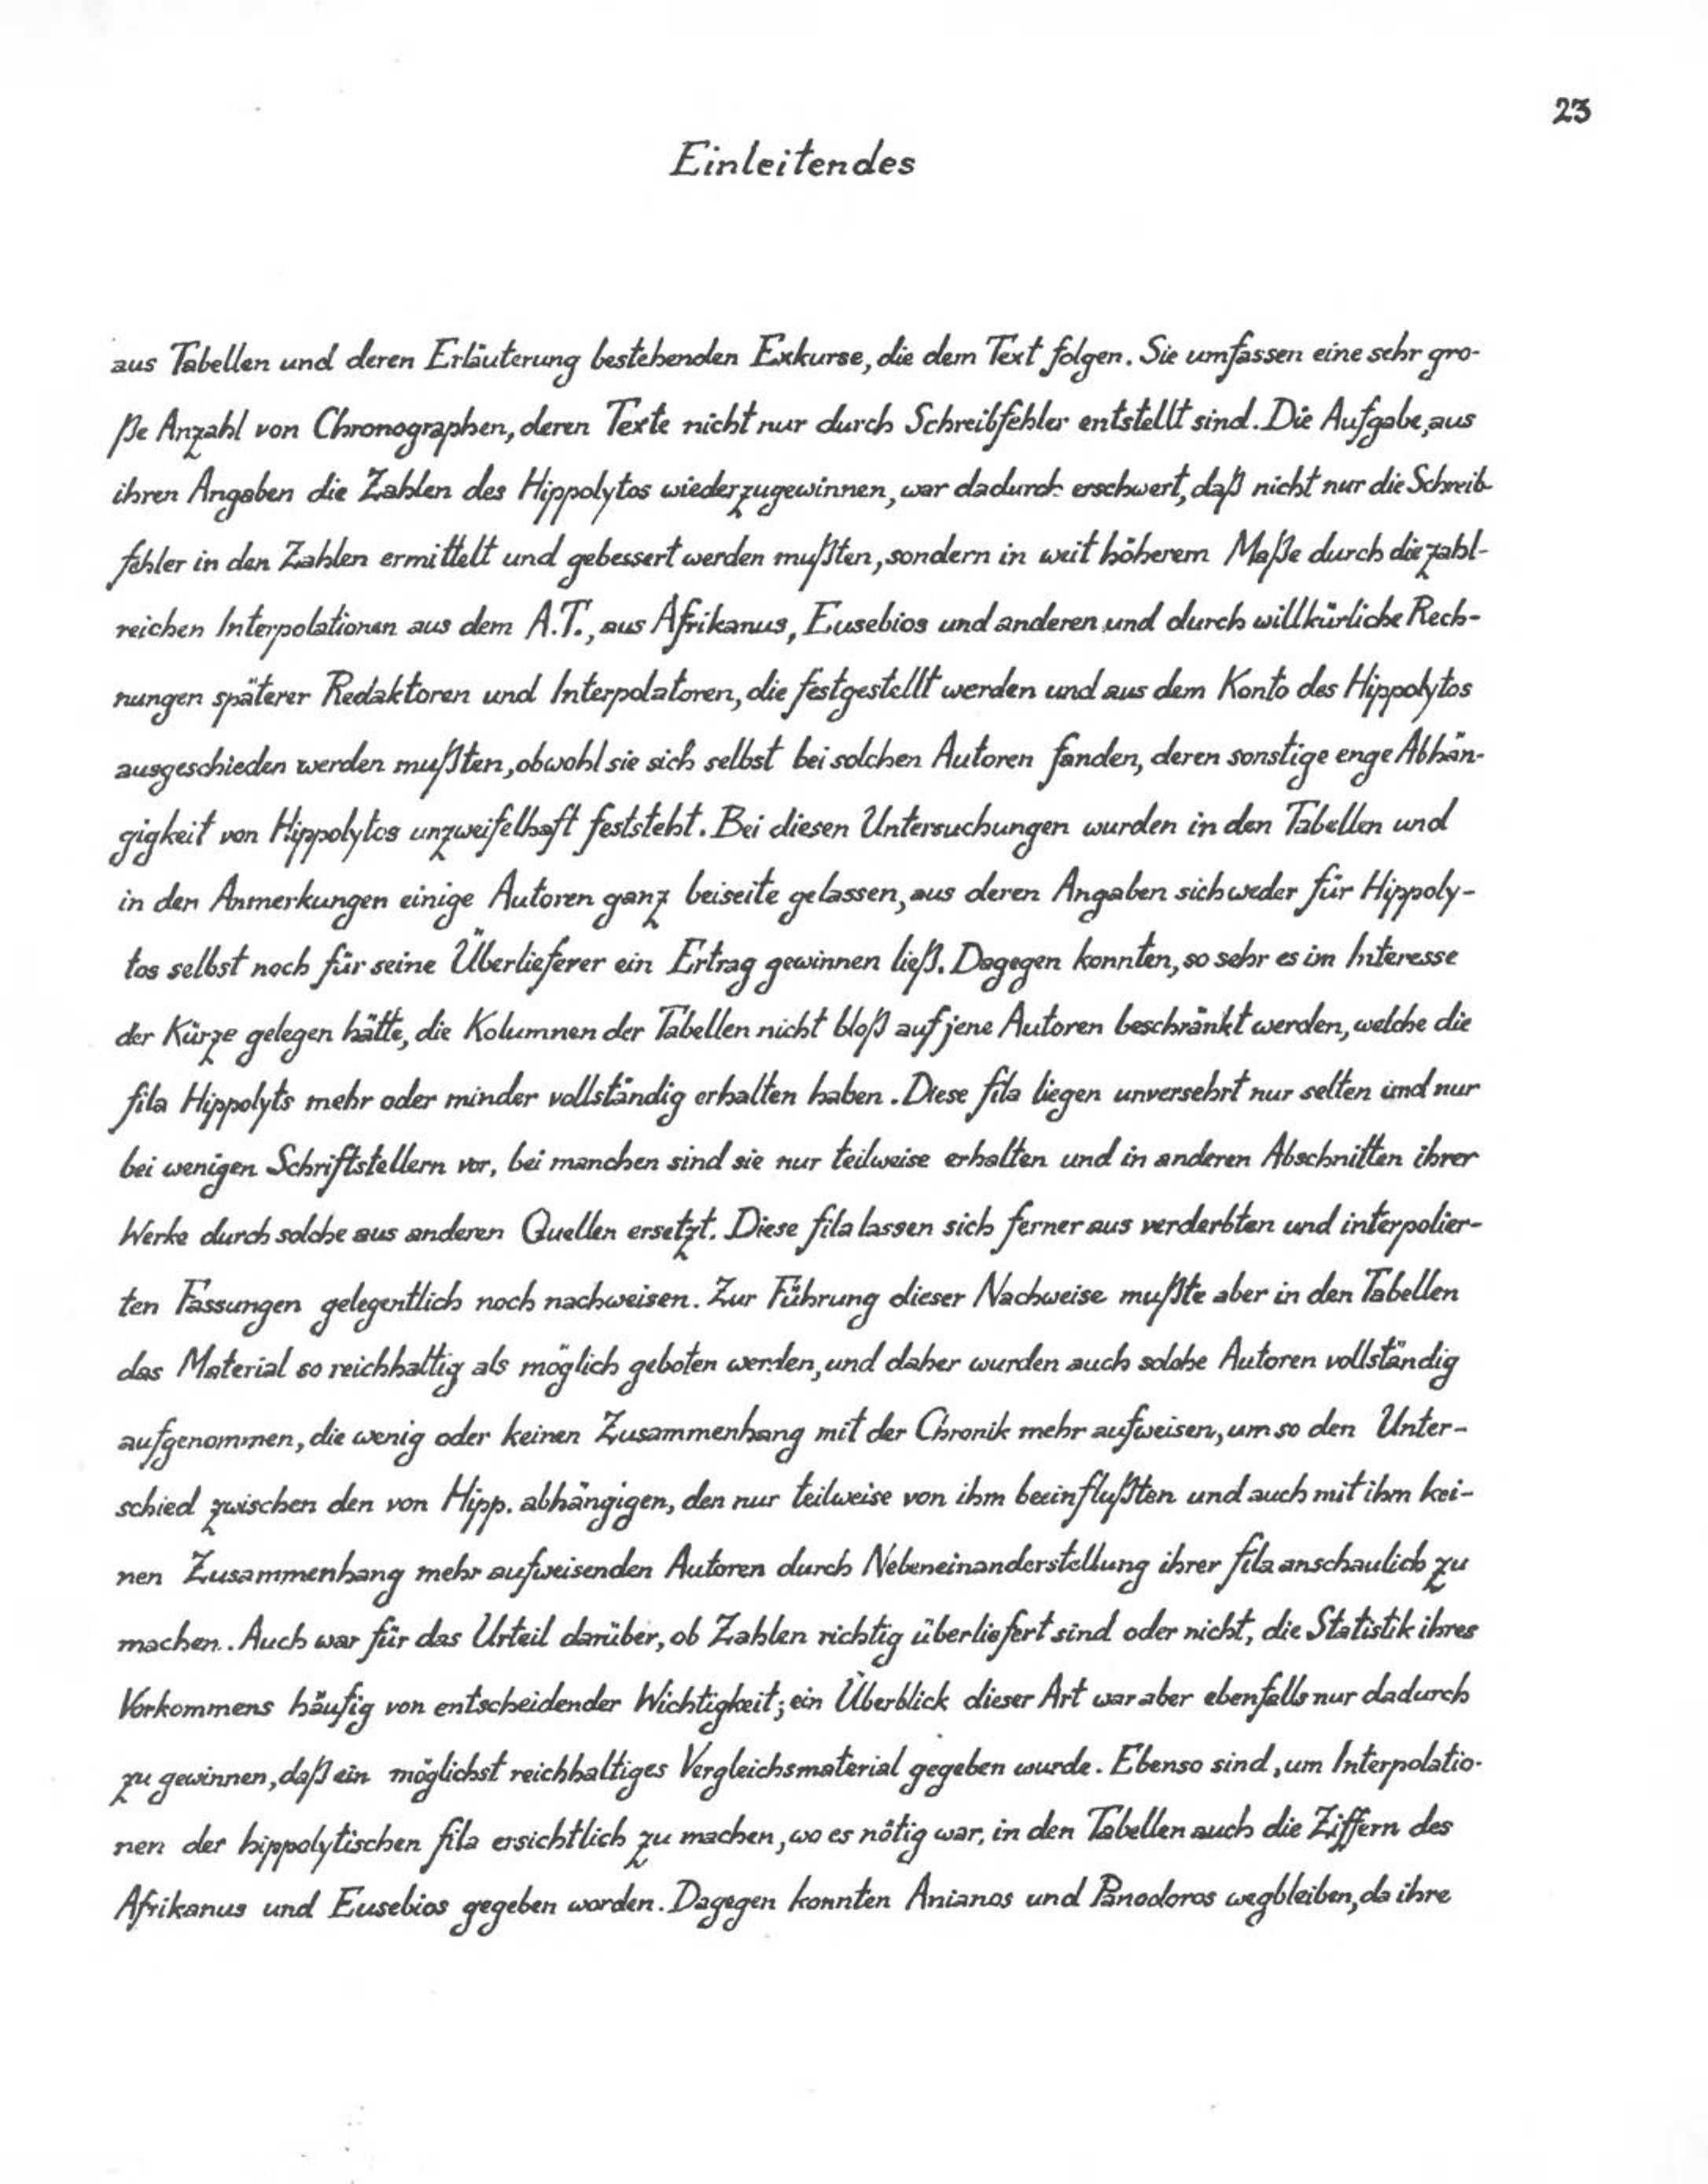 23
Einleitendes
aus Tabellen und deren Erläuterung bestehenden Exkurse, die dem Text folgen. Sie umfassen eine sehr gro-
ße Anzahl von Chronographen, deren Texte nicht nur durch Schreibfehler entstellt sind. Die Aufgabe, aus
ihren Angaben die Zahlen des Hippolytos wiederzugewinnen, war dadurch erschwert, daß nicht nur die Schreib-
fehler in den Zahlen ermittelt und gebessert werden mußten, sondern in weit höherem Maße durch die zahl-
reichen Interpolationen aus dem A.T., aus Afrikanus, Eusebios und anderen und durch willkürliche Rech-
nungen späterer Redaktoren und Interpolatoren, die festgestellt werden und aus dem Konto des Hippolytos
ausgeschieden werden mußten, obwohl sie sich selbst bei solchen Autoren fanden, deren sonstige enge Abhän-
gigkeit von Hippolytos unzweifelhaft feststeht. Bei diesen Untersuchungen wurden in den Tabellen und
in den Anmerkungen einige Autoren ganz beiseite gelassen, aus deren Angaben sich weder für Hippoly-
tos selbst noch für seine Überlieferer ein Ertrag gewinnen ließ. Dagegen konnten, so sehr es im Interesse
der Kürze gelegen hätte, die Kolumnen der Tabellen nicht bloß auf jene Autoren beschränkt werden, welche die
fila Hippolyts mehr oder minder vollständig erhalten haben. Diese fila liegen unversehrt nur selten und nur
bei wenigen Schriftstellern vor, bei manchen sind sie nur teilweise erhalten und in anderen Abschnitten ihrer
Werke durch solche aus anderen Quellen ersetzt. Diese fila lassen sich ferner aus verderbten und interpolier-
ten Fassungen gelegentlich noch nachweisen. Zur Führung dieser Nachweise mußte aber in den Tabellen
das Material so reichhaltig als möglich geboten werden, und daher wurden auch solche Autoren vollständig
aufgenommen, die wenig oder keinen Zusammenhang mit der Chronik mehr aufweisen, um so den Unter-
schied zwischen den von Hipp. abhängigen, den nur teilweise von ihm beeinflußten und auch mit ihm kei-
nen Zusammenhang mehr aufweisenden Autoren durch Nebeneinanderstellung ihrer fila anschaulich zu
machen. Auch war für das Urteil darüber, ob Zahlen richtig überliefert sind oder nicht, die Statistik ihres
Vorkommens häufig von entscheidender Wichtigkeit; ein Überblick dieser Art war aber ebenfalls nur dadurch
zu gewinnen, daß ein möglichst reichhaltiges Vergleichsmaterial gegeben wurde. Ebenso sind, um Interpolatio-
nen der hippolytischen fila ersichtlich zu machen, wo es nötig war, in den Tabellen auch die Ziffern des
Afrikanus und Eusebios gegeben worden. Dagegen konnten Anianos und Panodoros wegbleiben, da ihre